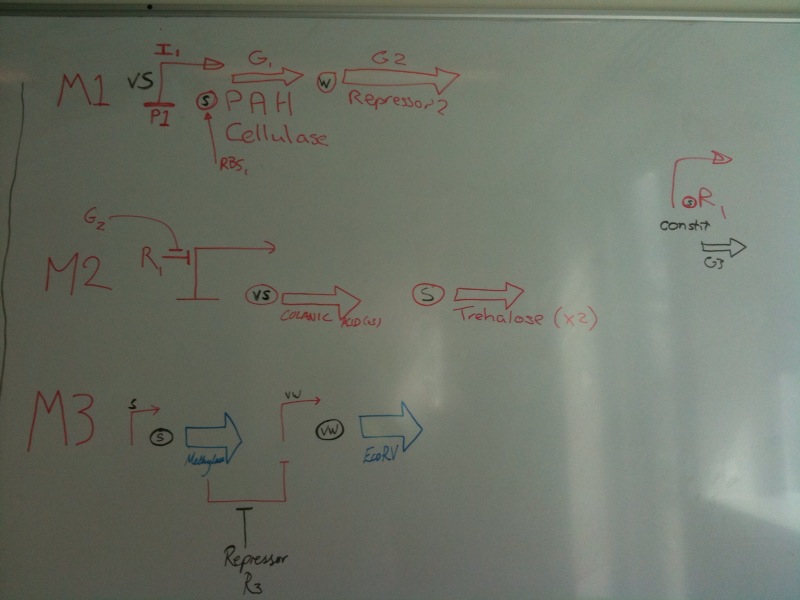 M1
VS
I1
P1
S
RBS1
G1
PAH
Cellulase
W
G2
Repressor 2
S
R1
constit
G3
M2
G2
R1
VS
COLANIC ACID (x5)
S
Trehalose (x2)
M3
S
S
Methylase
VW
VW
EcoRV
Repressor
R3